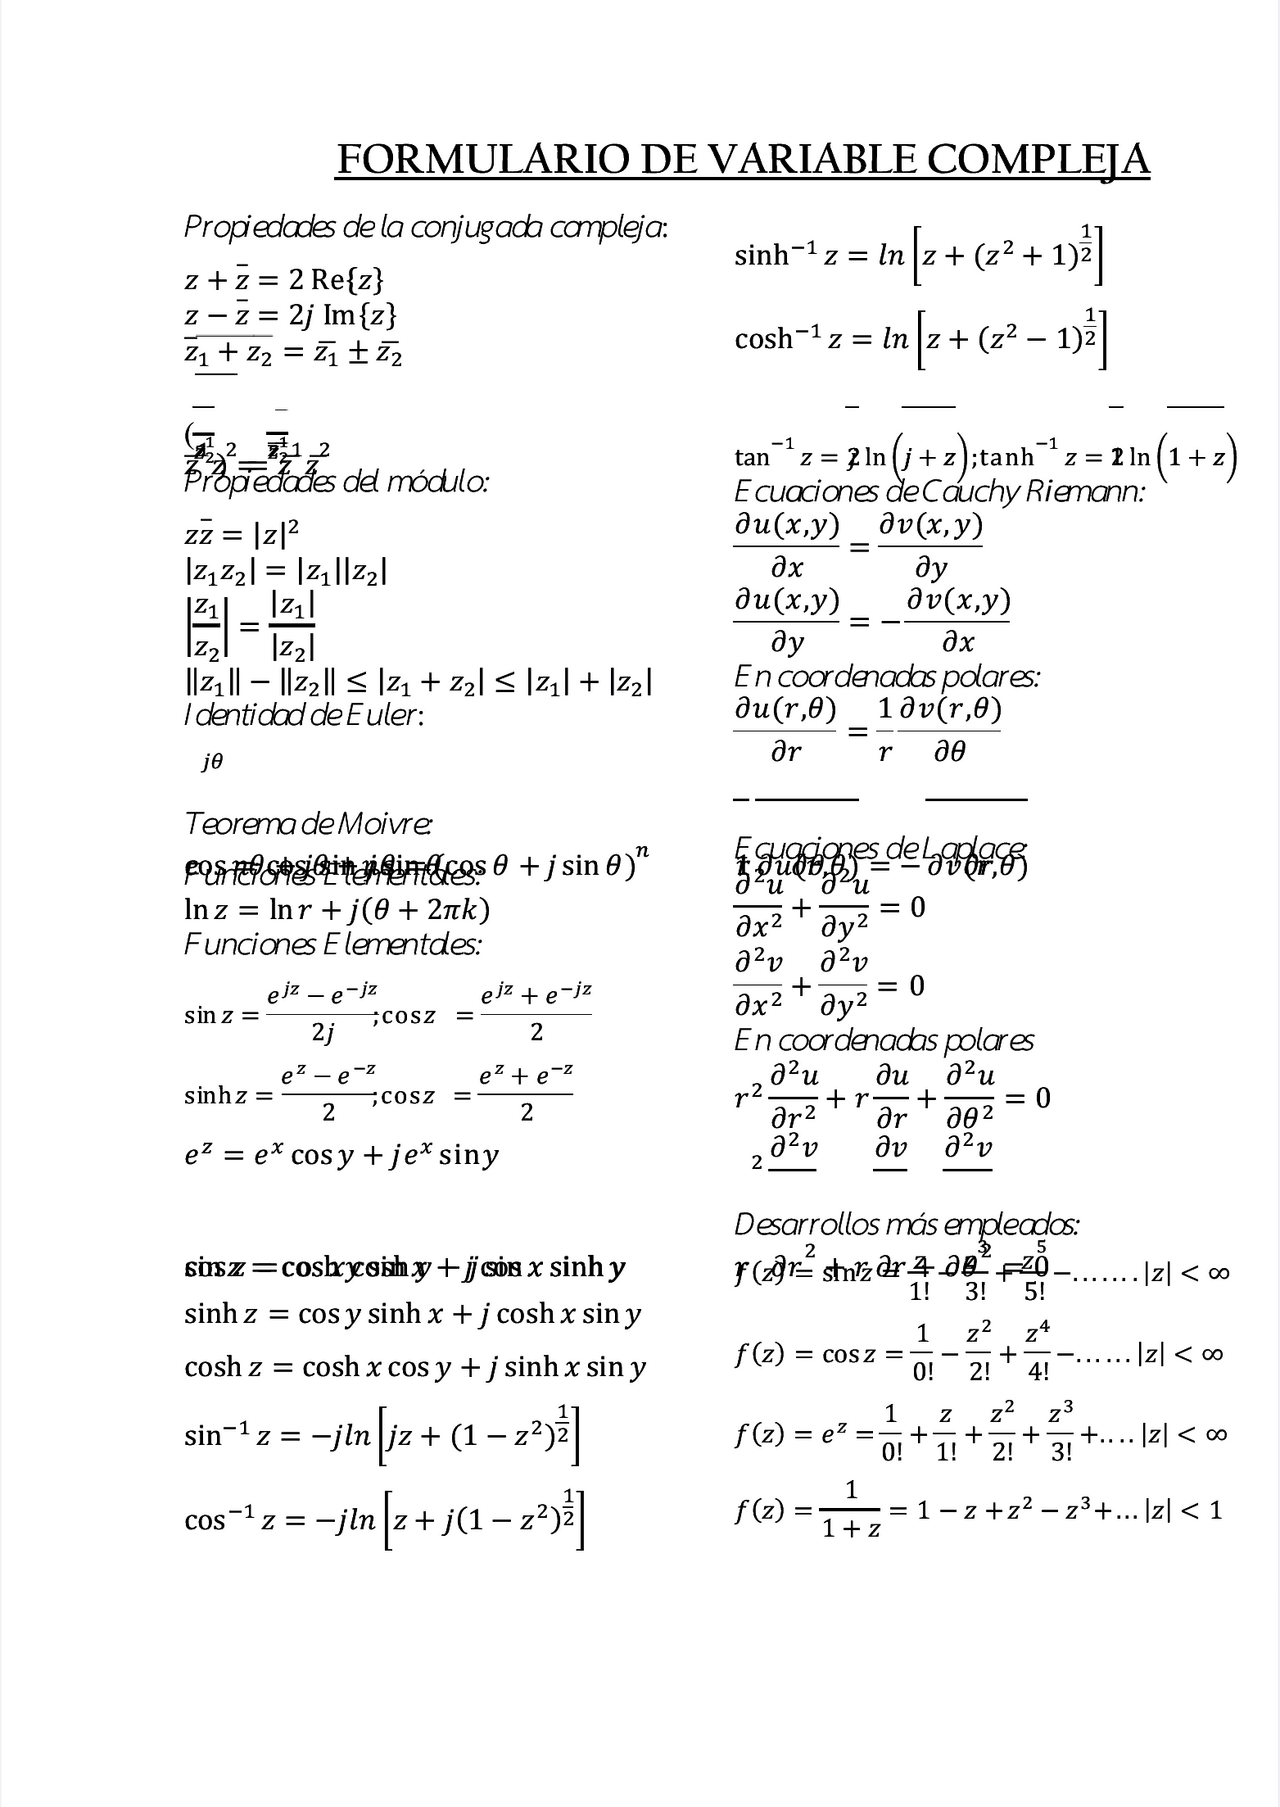 FORMULARIO DE VARIABLE COMPLEJA
Propiedades de la conjugada compleja:
z + z̄ = 2 Re{z}
z − z̄ = 2j Im{z}
z̄₁ + z₂ = z̄₁ ± z̄₂
Propiedades del módulo:
zz̄ = |z|²
|z₁z₂| = |z₁||z₂|
|z₁/z₂| = |z₁|/|z₂|
‖z₁‖ − ‖z₂‖ ≤ |z₁ + z₂| ≤ |z₁| + |z₂|
Identidad de Euler:
jθ
Teorema de Moivre:
cos θ + j sin θ)ⁿ
Funciones Elementales:
ln z = ln r + j(θ + 2πk)
Funciones Elementales:
sin z = (e^{jz} − e^{−jz})/2j ; cos z = (e^{jz} + e^{−jz})/2
sinh z = (e^z − e^{−z})/2 ; cos z = (e^z + e^{−z})/2
e^z = e^x cos y + je^x sin y
sinh z = cos y sinh x + j cosh x sin y
cosh z = cosh x cos y + j sinh x sin y
sin⁻¹ z = −jln[jz + (1 − z²)^{1/2}]
cos⁻¹ z = −jln[z + j(1 − z²)^{1/2}]
sinh⁻¹ z = ln[z + (z² + 1)^{1/2}]
cosh⁻¹ z = ln[z + (z² − 1)^{1/2}]
tan⁻¹ z = ln(j + z); tanh⁻¹ z = ln(1 + z)
Ecuaciones de Cauchy Riemann:
∂u(x,y)/∂x = ∂v(x,y)/∂y
∂u(x,y)/∂y = −∂v(x,y)/∂x
En coordenadas polares:
∂u(r,θ)/∂r = 1/r ∂v(r,θ)/∂θ
Ecuaciones de Laplace:
∂²u/∂x² + ∂²u/∂y² = 0
∂²v/∂x² + ∂²v/∂y² = 0
En coordenadas polares
r² ∂²u/∂r² + r ∂u/∂r + ∂²u/∂θ² = 0
2 ∂²v ∂v ∂²v
Desarrollos más empleados:
f(z) = sin z = z/1! − z³/3! + z⁵/5! −....... |z| < ∞
f(z) = cos z = 1/0! − z²/2! + z⁴/4! −...... |z| < ∞
f(z) = e^z = 1/0! + z/1! + z²/2! + z³/3! +.... |z| < ∞
f(z) = 1/(1 + z) = 1 − z + z² − z³ +... |z| < 1